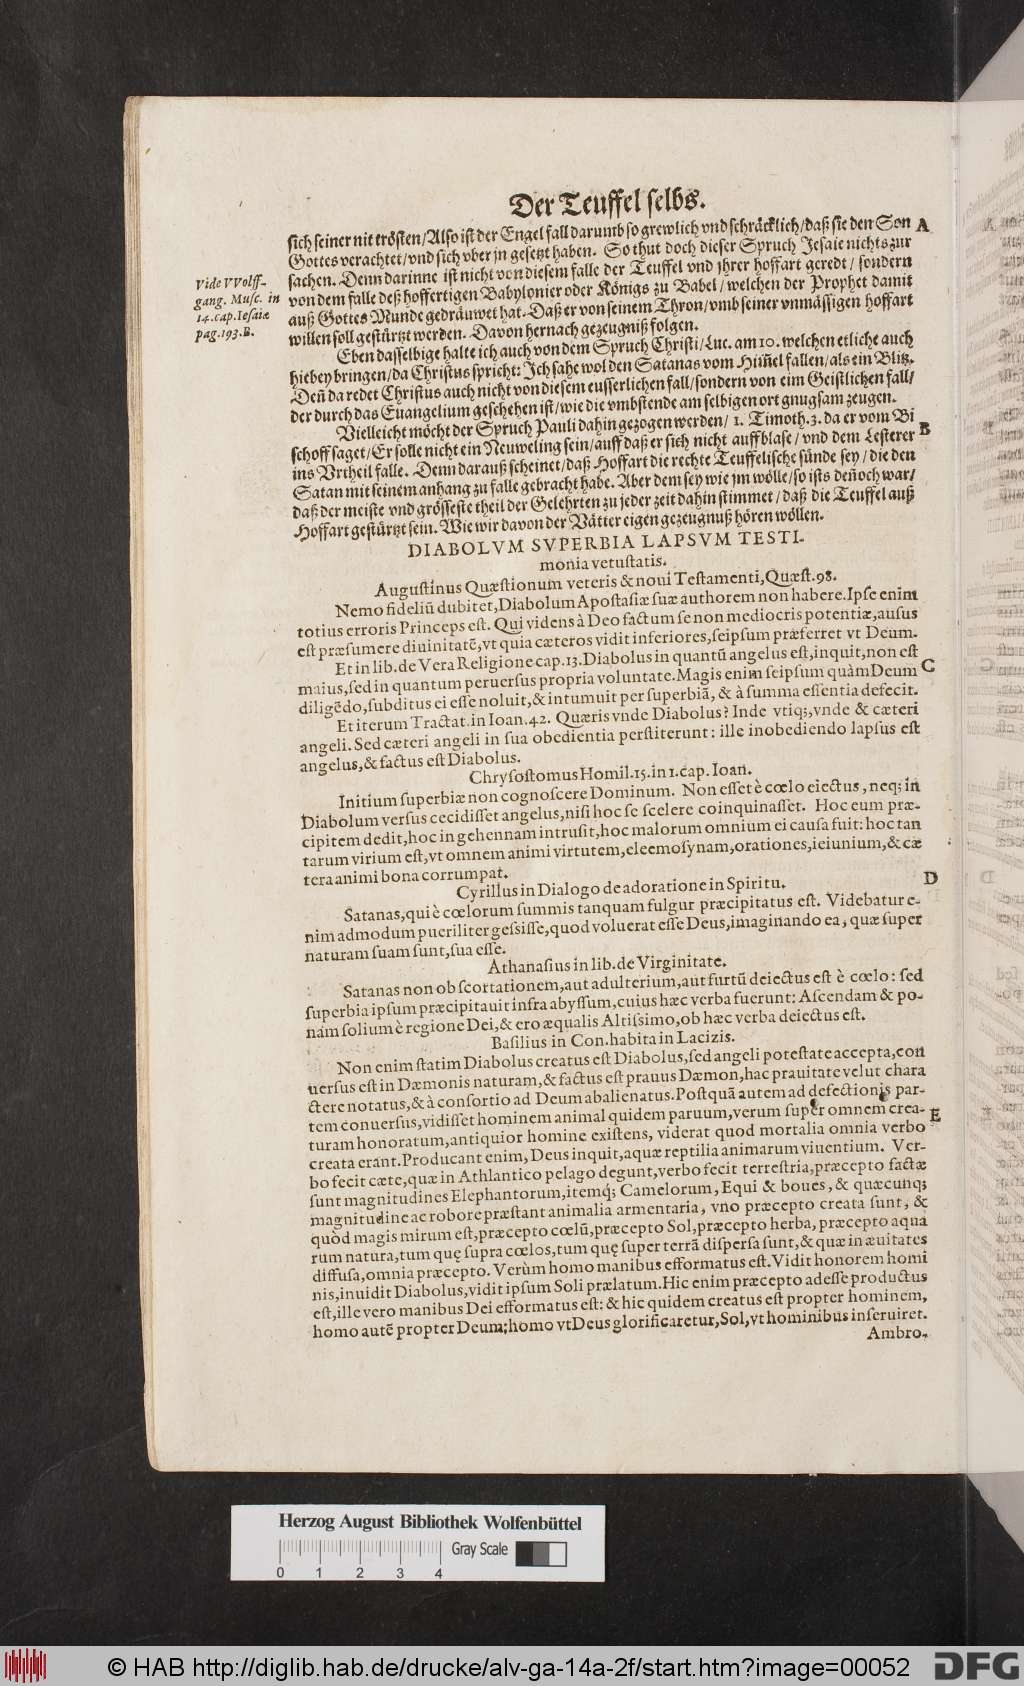 Der Teuffel selbs.
sich seiner nit trösten/Also ist der Engel fall darumb so grewlich vnd schräcklich/daß sie den Son A
Gottes verachtet/vnd sich vber jn gesetzt haben. So thut doch dieser Spruch Jesaie nichts zur
sachen. Denn darinne ist nicht von diesem falle der Teuffel vnd jhrer hoffart geredt/ sondern
von dem falle deß hoffertigen Babylonier oder Königs zu Babel/welchen der Prophet damit
auß Gottes Munde gedräuwet hat. Daß er von seinem Thron/vmb seiner vnmässigen hoffart
willen soll gestürtzt werden. Davon hernach gezeugniß folgen.
Vide VVolff-
gang. Musc. in
14. cap. Iesaiæ
pag. 193. B.
Eben dasselbige halte ich auch von dem Spruch Christi/Luc. am 10. welchen etliche auch
hiebey bringen/da Christus spricht: Ich sahe wol den Satanas vom Him̃el fallen/als ein Blitz.
Deñ da redet Christus auch nicht von diesem eusserlichen fall/sondern von eim Geistlichen fall/
der durch das Euangelium geschehen ist/wie die vmbstende am selbigen ort gnugsam zeugen.
Vielleicht möcht der Spruch Pauli dahin gezogen werden/ 1. Timoth. 3. da er vom Bi B
schoff saget/Er solle nicht ein Neuweling sein/auff daß er sich nicht auffblase/ vnd dem Lesterer
ins Vrtheil falle. Denn darauß scheinet/daß Hoffart die rechte Teuffelische sünde sey/die den
Satan mit seinem anhang zu falle gebracht habe. Aber dem sey wie jm wölle/so ists deñoch war/
daß der meiste vnd grösseste theil der Gelehrten zu jeder zeit dahin stimmet/ daß die Teuffel auß
Hoffart gestürtzt sein. Wie wir davon der Vätter eigen gezeugnuß hören wöllen.
DIABOLVM SVPERBIA LAPSVM TESTI-
monia vetustatis.
Augustinus Quæstionum veteris & noui Testamenti, Quæst. 98.
Nemo fideliũ dubitet, Diabolum Apostasiæ suæ authorem non habere. Ipse enim
totius erroris Princeps est. Qui videns à Deo factum se non mediocris potentiæ, ausus
est præsumere diuinitatẽ, vt quia cæteros vidit inferiores, seipsum præferret vt Deum.
Et in lib. de Vera Religione cap. 13. Diabolus in quantũ angelus est, inquit, non est C
maius, sed in quantum peruersus propria voluntate. Magis enim seipsum quàm Deum
diligẽdo, subditus ei esse noluit, & intumuit per superbiã, & à summa essentia defecit.
Et iterum Tractat. in Ioan. 42. Quæris vnde Diabolus? Inde vtiq;, vnde & cæteri
angeli. Sed cæteri angeli in sua obedientia perstiterunt: ille inobediendo lapsus est
angelus, & factus est Diabolus.
Chrysostomus Homil. 15. in 1. cap. Ioan.
Initium superbiæ non cognoscere Dominum. Non esset è cœlo eiectus, neq; in
Diabolum versus cecidisset angelus, nisi hoc se scelere coinquinasset. Hoc eum præ-
cipitem dedit, hoc in gehennam intrusit, hoc malorum omnium ei causa fuit: hoc tan
tarum virium est, vt omnem animi virtutem, eleemosynam, orationes, ieiunium, & cæ
tera animi bona corrumpat.
Cyrillus in Dialogo de adoratione in Spiritu. D
Satanas, qui è cœlorum summis tanquam fulgur præcipitatus est. Videbatur e-
nim admodum pueriliter gessisse, quod voluerat esse Deus, imaginando ea, quæ super
naturam suam sunt, sua esse.
Athanasius in lib. de Virginitate.
Satanas non ob scortationem, aut adulterium, aut furtũ deiectus est è cœlo: sed
superbia ipsum præcipitauit infra abyssum, cuius hæc verba fuerunt: Ascendam & po-
nam solium è regione Dei, & ero æqualis Altissimo, ob hæc verba deiectus est.
Basilius in Con. habita in Lacizis.
Non enim statim Diabolus creatus est Diabolus, sed angeli potestate accepta, con
uersus est in Dæmonis naturam, & factus est prauus Dæmon, hac prauitate velut chara
ctere notatus, & à consortio ad Deum abalienatus. Postquã autem ad defectionis par-
tem conuersus, vidisset hominem animal quidem paruum, verum super omnem crea- E
turam honoratum, antiquior homine existens, viderat quod mortalia omnia verbo
creata erant. Producant enim, Deus inquit, aquæ reptilia animarum viuentium. Ver-
bo fecit cæte, quæ in Athlantico pelago degunt, verbo fecit terrestria, præcepto factæ
sunt magnitudines Elephantorum, itemq́; Camelorum, Equi & boues, & quæcunq;
magnitudine ac robore præstant animalia armentaria, vno præcepto creata sunt, &
quòd magis mirum est, præcepto cœlũ, præcepto Sol, præcepto herba, præcepto aqua
rum natura, tum quę supra cœlos, tum quę super terrã dispersa sunt, & quæ in æuitates
diffusa, omnia præcepto. Verùm homo manibus efformatus est. Vidit honorem homi
nis, inuidit Diabolus, vidit ipsum Soli prælatum. Hic enim præcepto adesse productus
est, ille vero manibus Dei efformatus est: & hic quidem creatus est propter hominem,
homo autẽ propter Deum; homo vt Deus glorificaretur, Sol, vt hominibus inseruiret.
Ambro-
Herzog August Bibliothek Wolfenbüttel
Gray Scale
0 1 2 3 4
© HAB http://diglib.hab.de/drucke/alv-ga-14a-2f/start.htm?image=00052
DFG